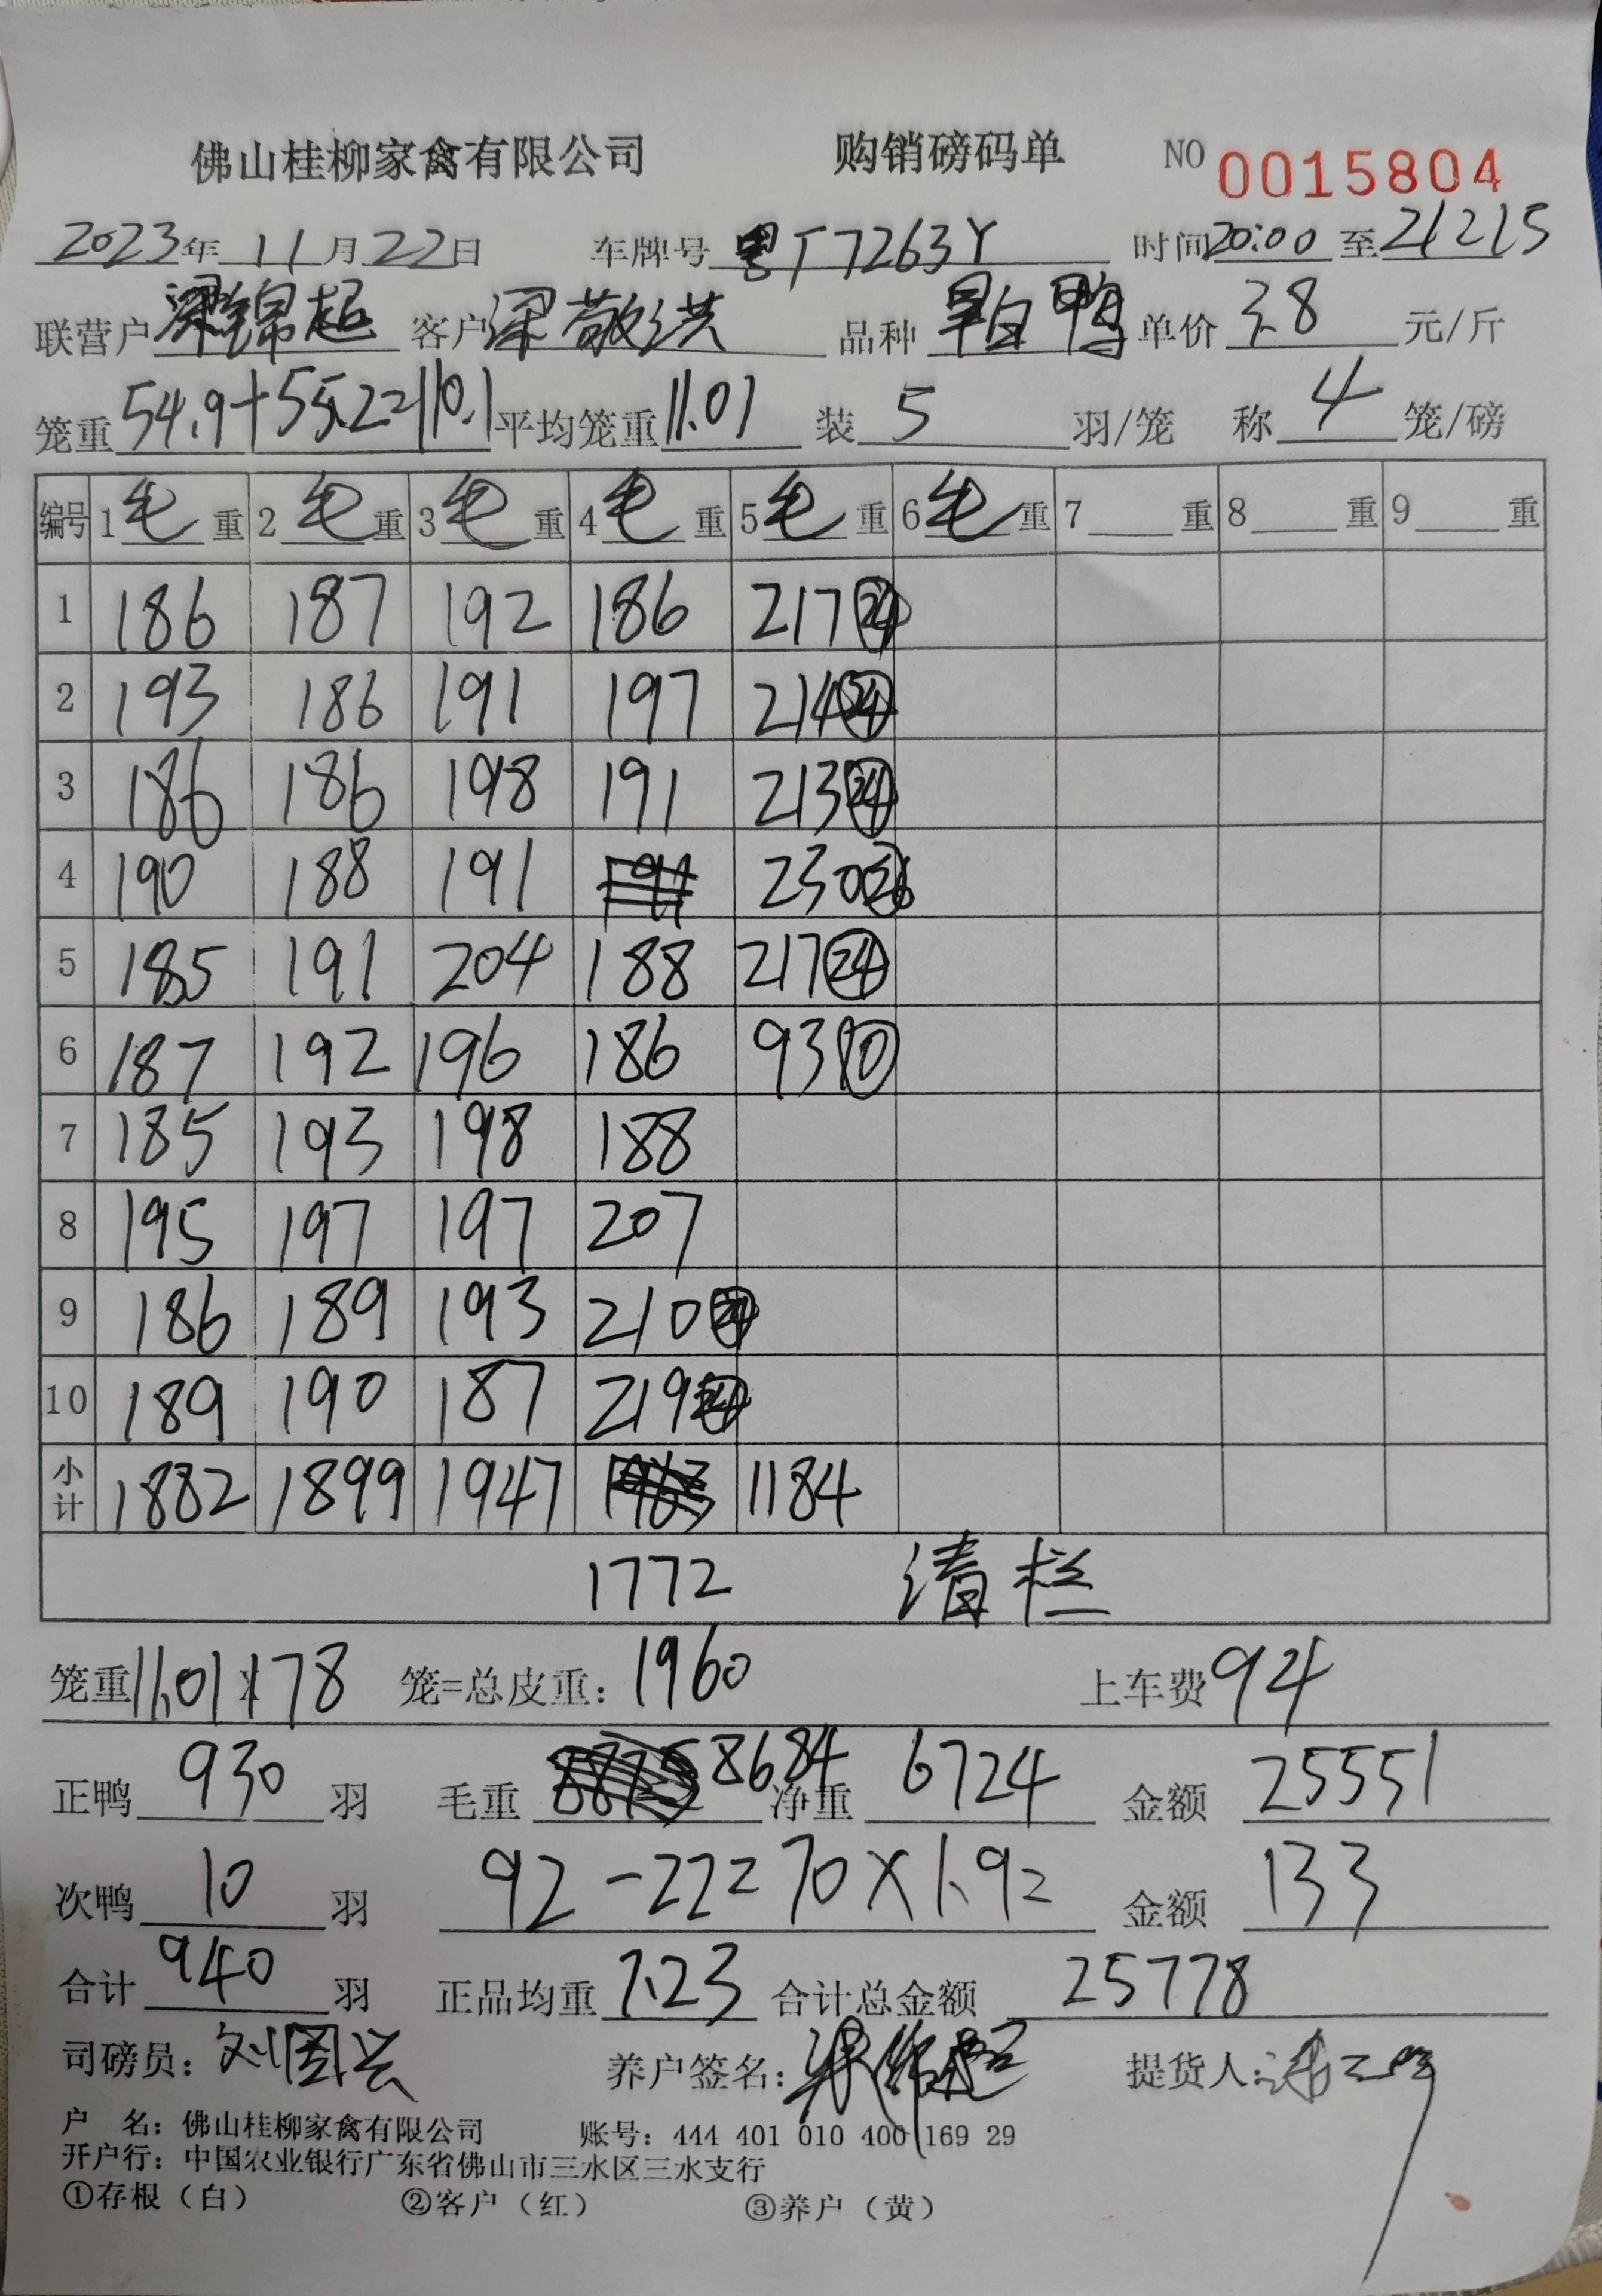 佛山桂柳家禽有限公司 购销磅码单 NO 0015804
2023年 11月22日 车牌号 粤T7263Y 时间20:00 至21215
联营户 梁锦超 客户 梁敬洪 品种 鸭 单价 3.8 元/斤
笼重 54.9+55.2=110.1 平均笼重 11.01 装 5 羽/笼 称 4 笼/磅
编号 1毛重 2毛重 3毛重 4毛重 5毛重 6毛重 7重 8重 9重
1 186 187 192 186 217 24
2 193 186 191 197 214 24
3 186 186 198 191 213 24
4 190 188 191 230 26
5 185 191 204 188 217 24
6 187 192 196 186 93 10
7 185 193 198 188
8 195 197 197 207
9 186 189 193 210 24
10 189 190 187 219 24
小计 1882 1899 1947 1184
1772 清栏
笼重 11.01×178 笼=总皮重: 1960 上车费 94
正鸭 930 羽 毛重 8684 净重 6724 金额 25551
次鸭 10 羽 92-22=70×1.9= 金额 133
合计 940 羽 正品均重 7.23 合计总金额 25778
司磅员: 刘国兴 养户签名: 梁锦超 提货人:
户 名: 佛山桂柳家禽有限公司 账号: 444 401 010 400 169 29
开户行: 中国农业银行广东省佛山市三水区三水支行
①存根(白) ②客户(红) ③养户(黄)